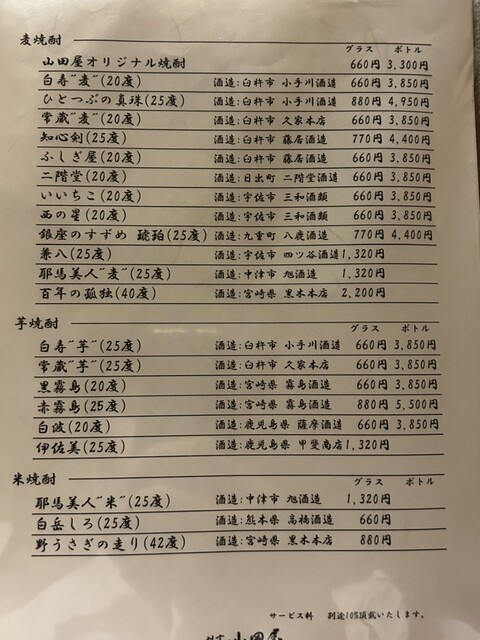 麦焼酎
グラス ボトル
山田屋オリジナル焼酎 660円 3,300円
白寿"麦"(20度) 酒造:臼杵市 小手川酒造 660円 3,850円
ひとつぶの真珠(25度) 酒造:臼杵市 小手川酒造 880円 4,950円
常蔵"麦"(20度) 酒造:臼杵市 久家本店 660円 3,850円
知心剣(25度) 酒造:臼杵市 藤居酒造 770円 4,400円
ふしぎ屋(20度) 酒造:臼杵市 藤居酒造 660円 3,850円
二階堂(20度) 酒造:日出町 二階堂酒造 660円 3,850円
いいちこ(20度) 酒造:宇佐市 三和酒類 660円 3,850円
西の星(20度) 酒造:宇佐市 三和酒類 660円 3,850円
銀座のすずめ 琥珀(25度) 酒造:九重町 八鹿酒造 770円 4,400円
兼八(25度) 酒造:宇佐市 四ツ谷酒造 1,320円
耶馬美人"麦"(25度) 酒造:中津市 旭酒造 1,320円
百年の孤独(40度) 酒造:宮崎県 黒木本店 2,200円
芋焼酎
グラス ボトル
白寿"芋"(25度) 酒造:臼杵市 小手川酒造 660円 3,850円
常蔵"芋"(25度) 酒造:臼杵市 久家本店 660円 3,850円
黒霧島(20度) 酒造:宮崎県 霧島酒造 660円 3,850円
赤霧島(25度) 酒造:宮崎県 霧島酒造 880円 5,500円
白波(20度) 酒造:鹿児島県 薩摩酒造 660円 3,850円
伊佐美(25度) 酒造:鹿児島県 甲斐商店 1,320円
米焼酎
グラス ボトル
耶馬美人"米"(25度) 酒造:中津市 旭酒造 1,320円
白岳しろ(25度) 酒造:熊本県 高橋酒造 660円
野うさぎの走り(42度) 酒造:宮崎県 黒木本店 880円
サービス料 別途10%頂戴いたします。
山田屋